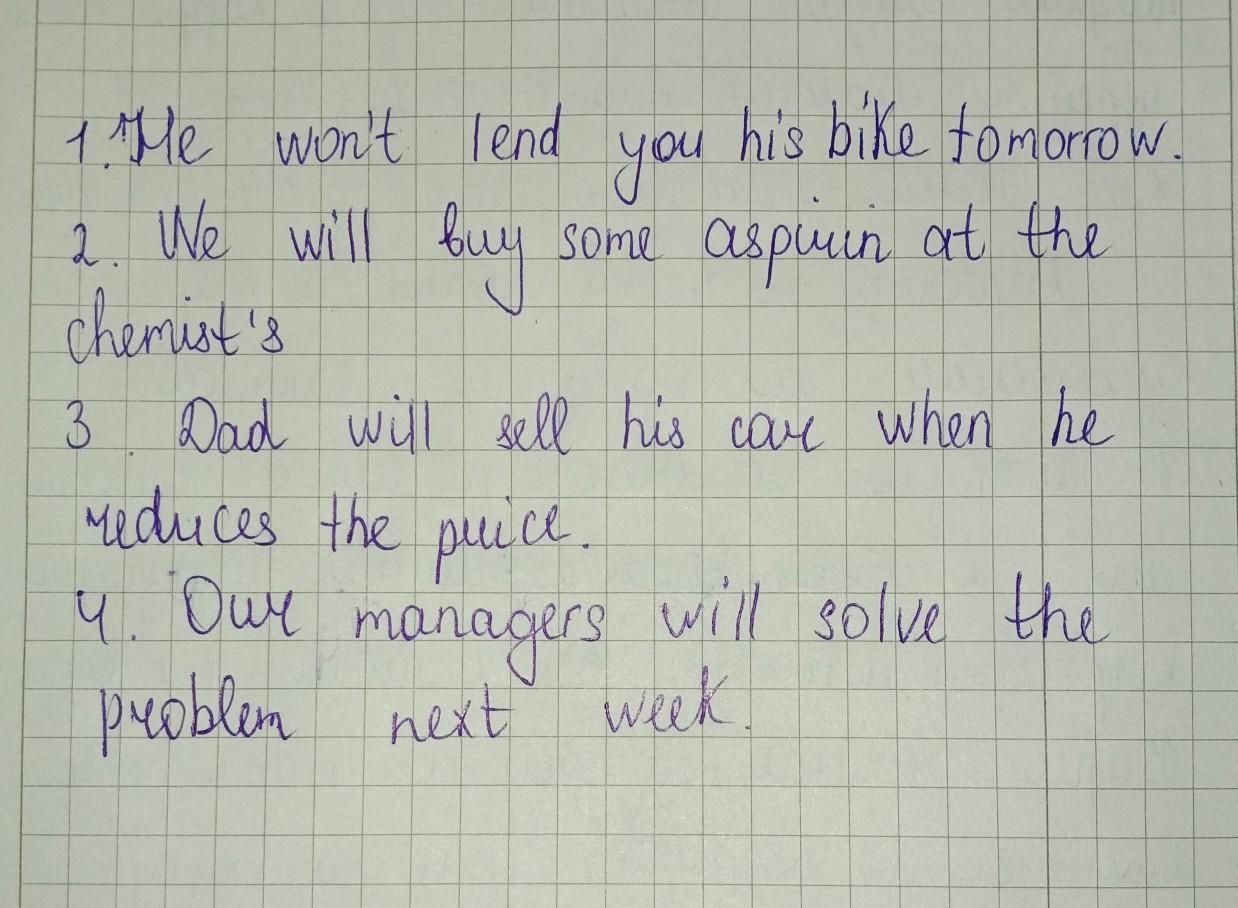 1. He won't lend you his bike tomorrow.
2. We will buy some aspirin at the
chemist's
3. Dad will sell his car when he
reduces the price.
4. Our managers will solve the
problem next week.